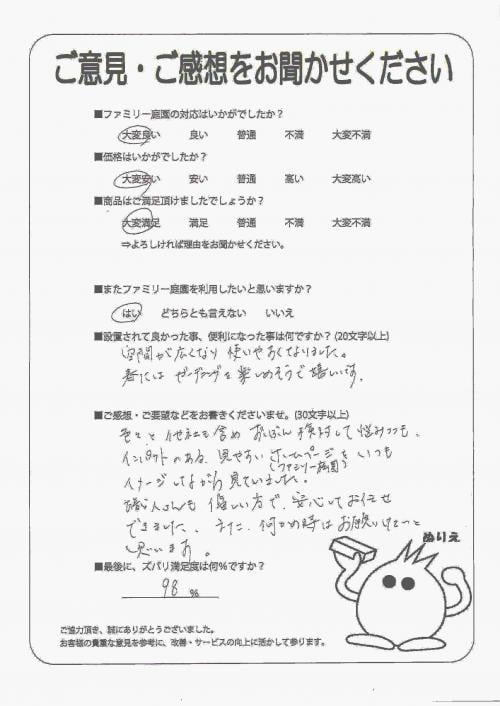 ご意見・ご感想をお聞かせください
■ファミリー庭園の対応はいかがでしたか?
大変良い 良い 普通 不満 大変不満
■価格はいかがでしたか?
大変安い 安い 普通 高い 大変高い
■商品はご満足頂けましたでしょうか?
大変満足 満足 普通 不満 大変不満
⇒よろしければ理由をお聞かせください。
■またファミリー庭園を利用したいと思いますか?
はい どちらとも言えない いいえ
■設置されて良かった事、便利になった事は何ですか?(20文字以上)
空間が広くなり 使いやすくなりました。
春には ガーデニングを楽しめそうで嬉しいです。
■ご感想・ご要望などをお書きくださいませ。(30文字以上)
色々と 他社も含め ずいぶん 検討して悩みつつも、
インパクトのある、見やすい ホームページを いつも
(ファミリー庭園)
イメージしながら 見ていました。
職人さんも 優しい方で、安心して お任せ
できました。また、何かの時は お願いしたいと
思います。
ぬりえ
■最後に、ズバリ満足度は何%ですか?
98 %
ご協力頂き、誠にありがとうございました。
お客様の貴重な意見を参考に、改善・サービスの向上に活かして参ります。